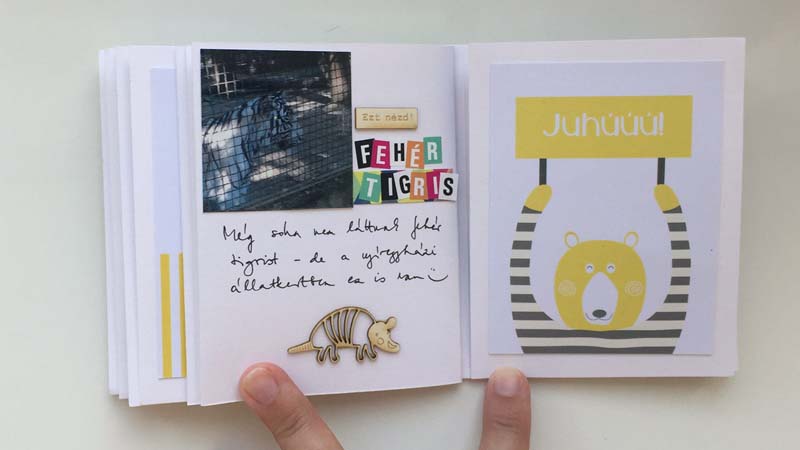 Ezt nézd!
FEHÉR
TIGRIS
Még soha nem láttunk fehér
tigrist – de a nyíregyházi
állatkertben ez is van :)
Juhúúú!